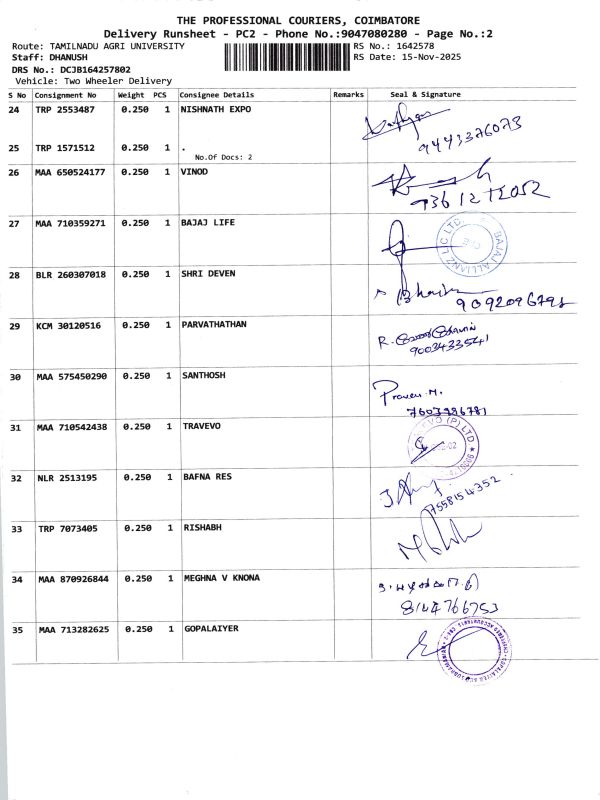 THE PROFESSIONAL COURIERS, COIMBATORE
Delivery Runsheet - PC2 - Phone No.:9047080280 - Page No.:2
Route: TAMILNADU AGRI UNIVERSITY RS No.: 1642578
Staff: DHANUSH RS Date: 15-Nov-2025
DRS No.: DCJB164257802
Vehicle: Two Wheeler Delivery
S No Consignment No Weight PCS Consignee Details Remarks Seal & Signature
24 TRP 2553487 0.250 1 NISHNATH EXPO
9443376073
25 TRP 1571512 0.250 1 .
No.Of Docs: 2
26 MAA 650524177 0.250 1 VINOD
27 MAA 710359271 0.250 1 BAJAJ LIFE
BAJAJ ALLIANZ LIC LTD.
28 BLR 260307018 0.250 1 SHRI DEVEN
9092096791
29 KCM 30120516 0.250 1 PARVATHATHAN
R.
9003433541
30 MAA 575450290 0.250 1 SANTHOSH
Praveen M.
7603986781
31 MAA 710542438 0.250 1 TRAVEVO
(P) LTD
32 NLR 2513195 0.250 1 BAFNA RES
7558154352
33 TRP 7073405 0.250 1 RISHABH
34 MAA 870926844 0.250 1 MEGHNA V KNONA
8144766753
35 MAA 713282625 0.250 1 GOPALAIYER